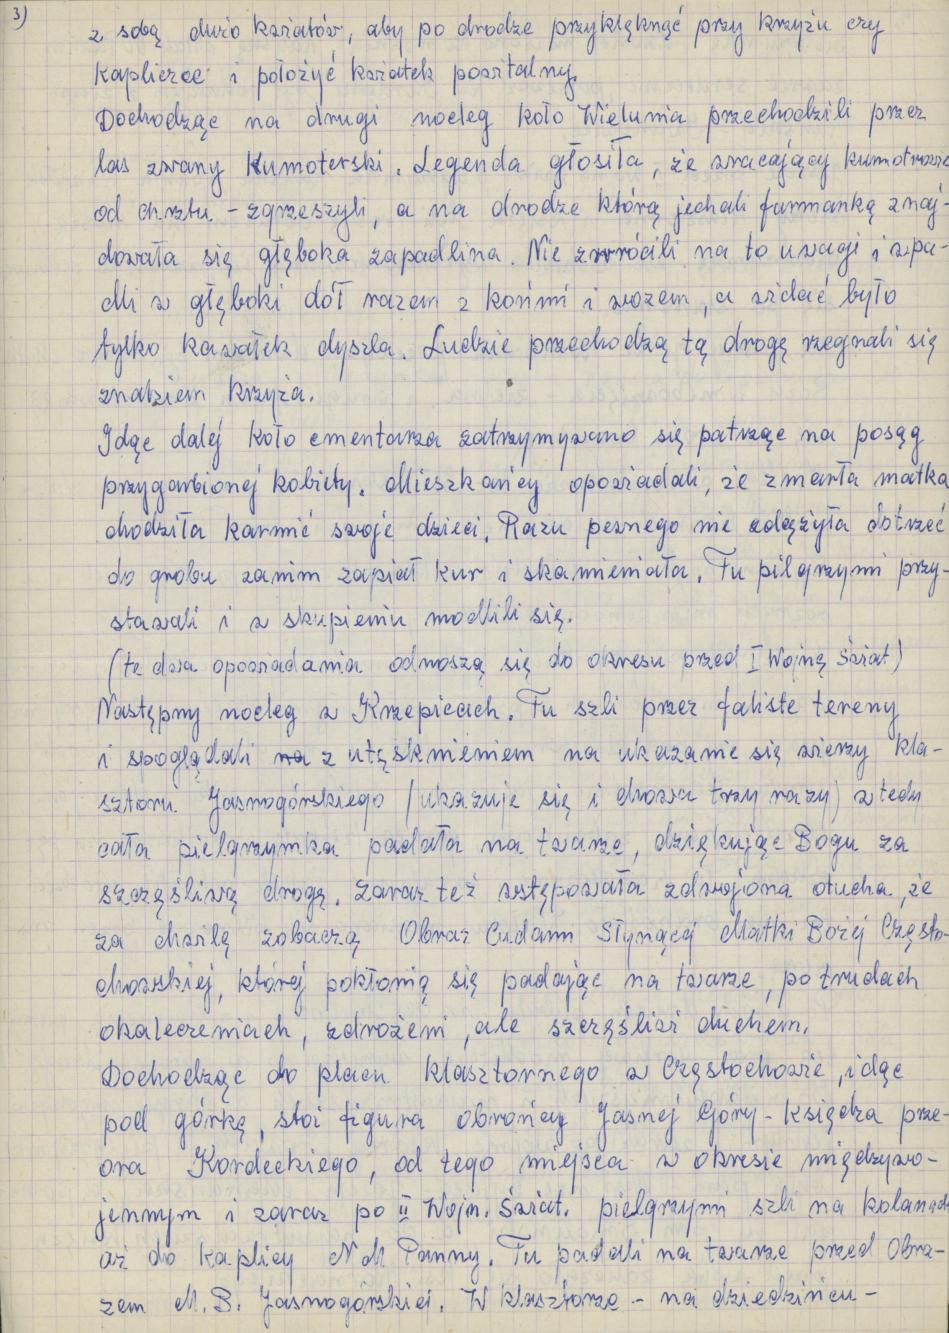 3)
z sobą dużo kwiatów, aby po drodze przyklęknąć przy krzyżu czy
kapliczce i położyć kwiatek powitalny.
Dochodząc na drugi nocleg koło Wielunia przechodzili przez
las zwany Kumoterski. Legenda głosiła, że wracający kumotrowie
od chrztu - zgrzeszyli, a na drodze którą jechali furmanką znaj-
dowała się głęboka zapadlina. Nie zwrócili na to uwagi i wpa-
dli w głęboki dół razem z końmi i wozem, a widać było
tylko kawałek dyszla. Ludzie przechodzą tą drogę żegnali się
znakiem krzyża.
Idąc dalej koło cmentarza zatrzymywano się patrząc na posąg
przygarbionej kobiety. Mieszkańcy opowiadali, że zmarła matka
chodziła karmić swoje dzieci. Razu pewnego nie zdążyła dotrzeć
do grobu zanim zapiał kur i skamieniała. Tu pielgrzymi przy-
stawali i w skupieniu modlili się.
(te dwa opowiadania odnoszą się do okresu przed I Wojną Świat)
Następny nocleg w Krzepicach. Tu szli przez faliste tereny
i spoglądali na z utęsknieniem na ukazanie się wieży kla-
sztoru Jasnogórskiego (ukazuje się i chowa trzy razy) wtedy
cała pielgrzymka padała na twarze, dziękując Bogu za
szczęśliwą drogę. Zaraz też wstępowała zdwojona otucha, że
za chwilę zobaczą Obraz Cudami Słynącej Matki Bożej Często-
chowskiej, której pokłonią się padając na twarze, po trudach
okaleczeniach, zdrożeni, ale szczęśliwi duchem.
Dochodząc do placu klasztornego w Częstochowie, idąc
pod górkę, stoi figura obrońcy Jasnej Góry - księdza prze-
ora Kordeckiego, od tego miejsca w okresie międzywo-
jennym i zaraz po II Wojn. Świat. pielgrzymi szli na kolanach
aż do kaplicy N M Panny. Tu padali na twarze przed Obra-
zem M. B. Jasnogórskiej. W klasztorze - na dziedzińcu -